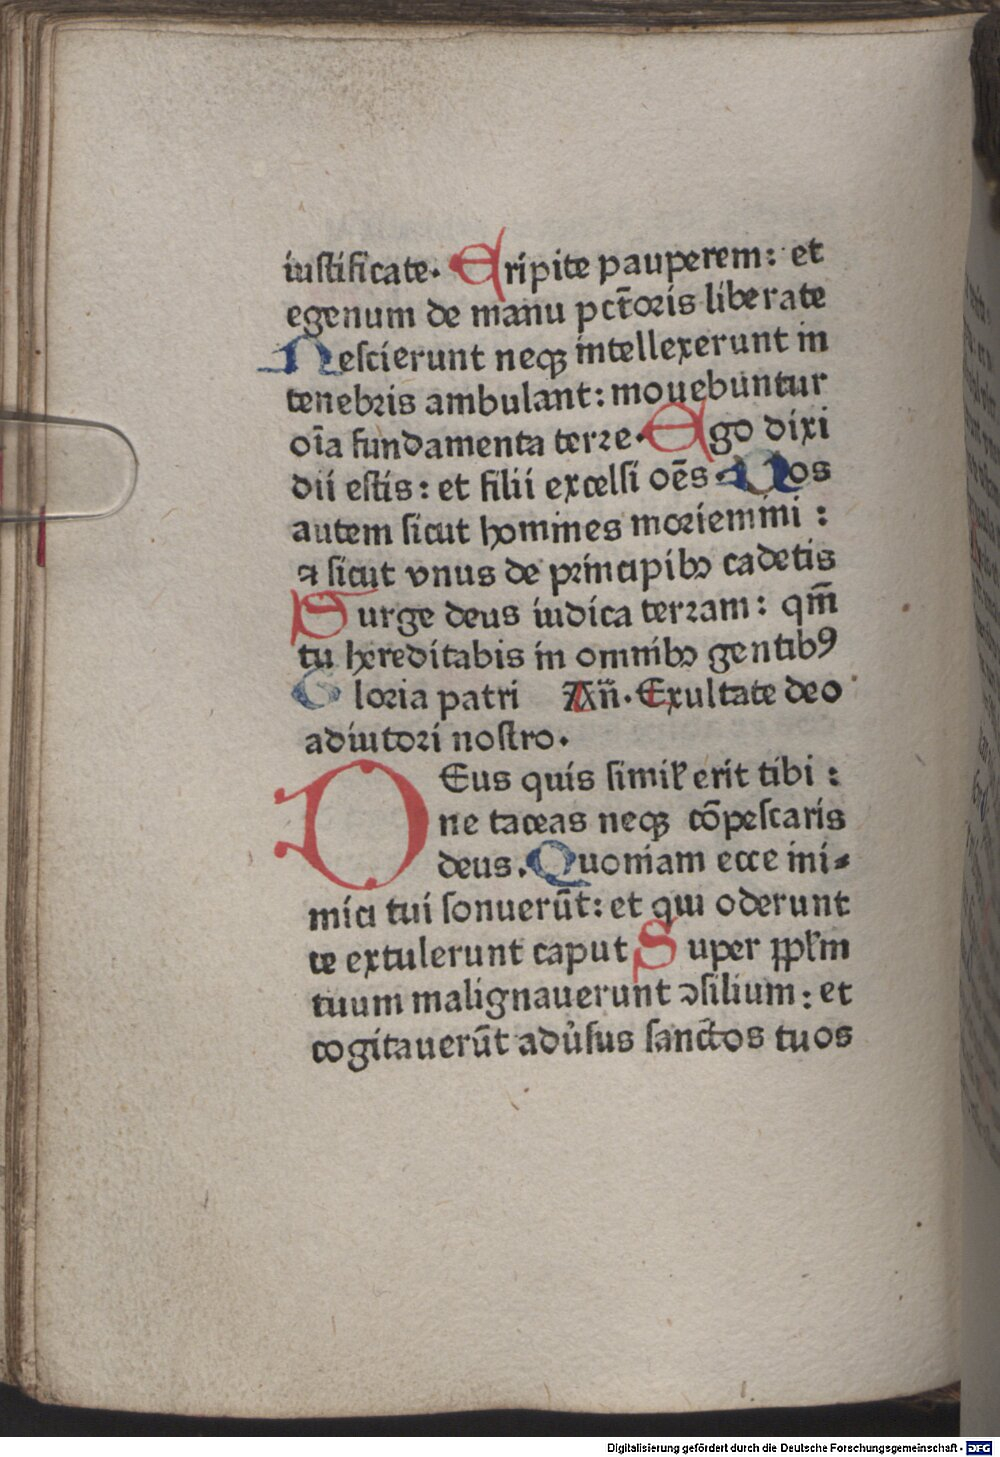 iustificate. Eripite pauperem: et
egenum de manu pctōris liberate
Nescierunt neqꝫ intellexerunt in
tenebris ambulant: mouebuntur
oīa fundamenta terre. Ego dixi
dii estis: et filii excelsi oēs. Uos
autem sicut homines moriemini :
⁊ sicut vnus de principibꝰ cadetis
Surge deus iudica terram: qm̄
tu hereditabis in omnibꝰ gentibꝰ
Gloria patri Añ. Exultate deo
adiutori nostro.
DEus quis simil' erit tibi :
ne taceas neqꝫ cōpescaris
deus. Quoniam ecce ini-
mici tui sonuerūt: et qui oderunt
te extulerunt caput Super ppl'm
tuum malignauerunt ꝯsilium: et
cogitauerūt adu'sus sanctos tuos
Digitalisierung gefördert durch die Deutsche Forschungsgemeinschaft - DFG